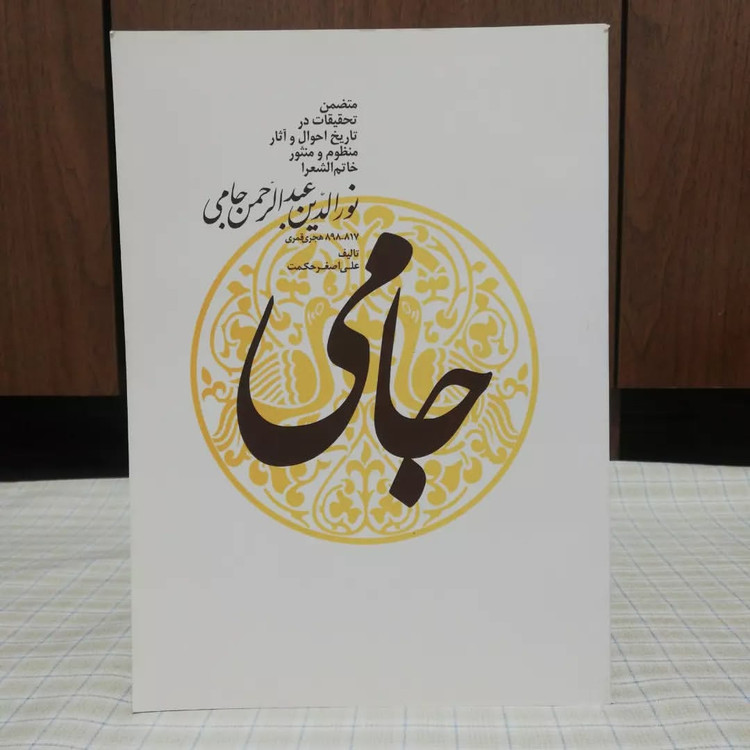 متضمن
تحقیقات در
تاریخ احوال و آثار
منظوم و منثور
خاتم‌الشعرا
نورالدّین عبدالرّحمن جامی
۸۱۷-۸۹۸ هجری قمری
تالیف
علی‌اصغر حکمت
جامی